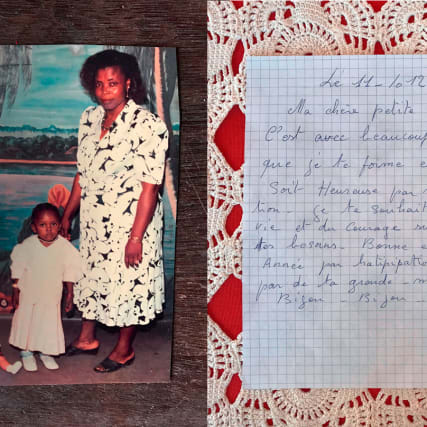 Le 11-/012
Ma chère petite
C'est avec beaucoup
que je te forme
Soit Heureuse par
tion - je te souhait
vie et du Courage
tes besoins - Bonne
Année par
par de ta grande - m
Bizou - Bizou -